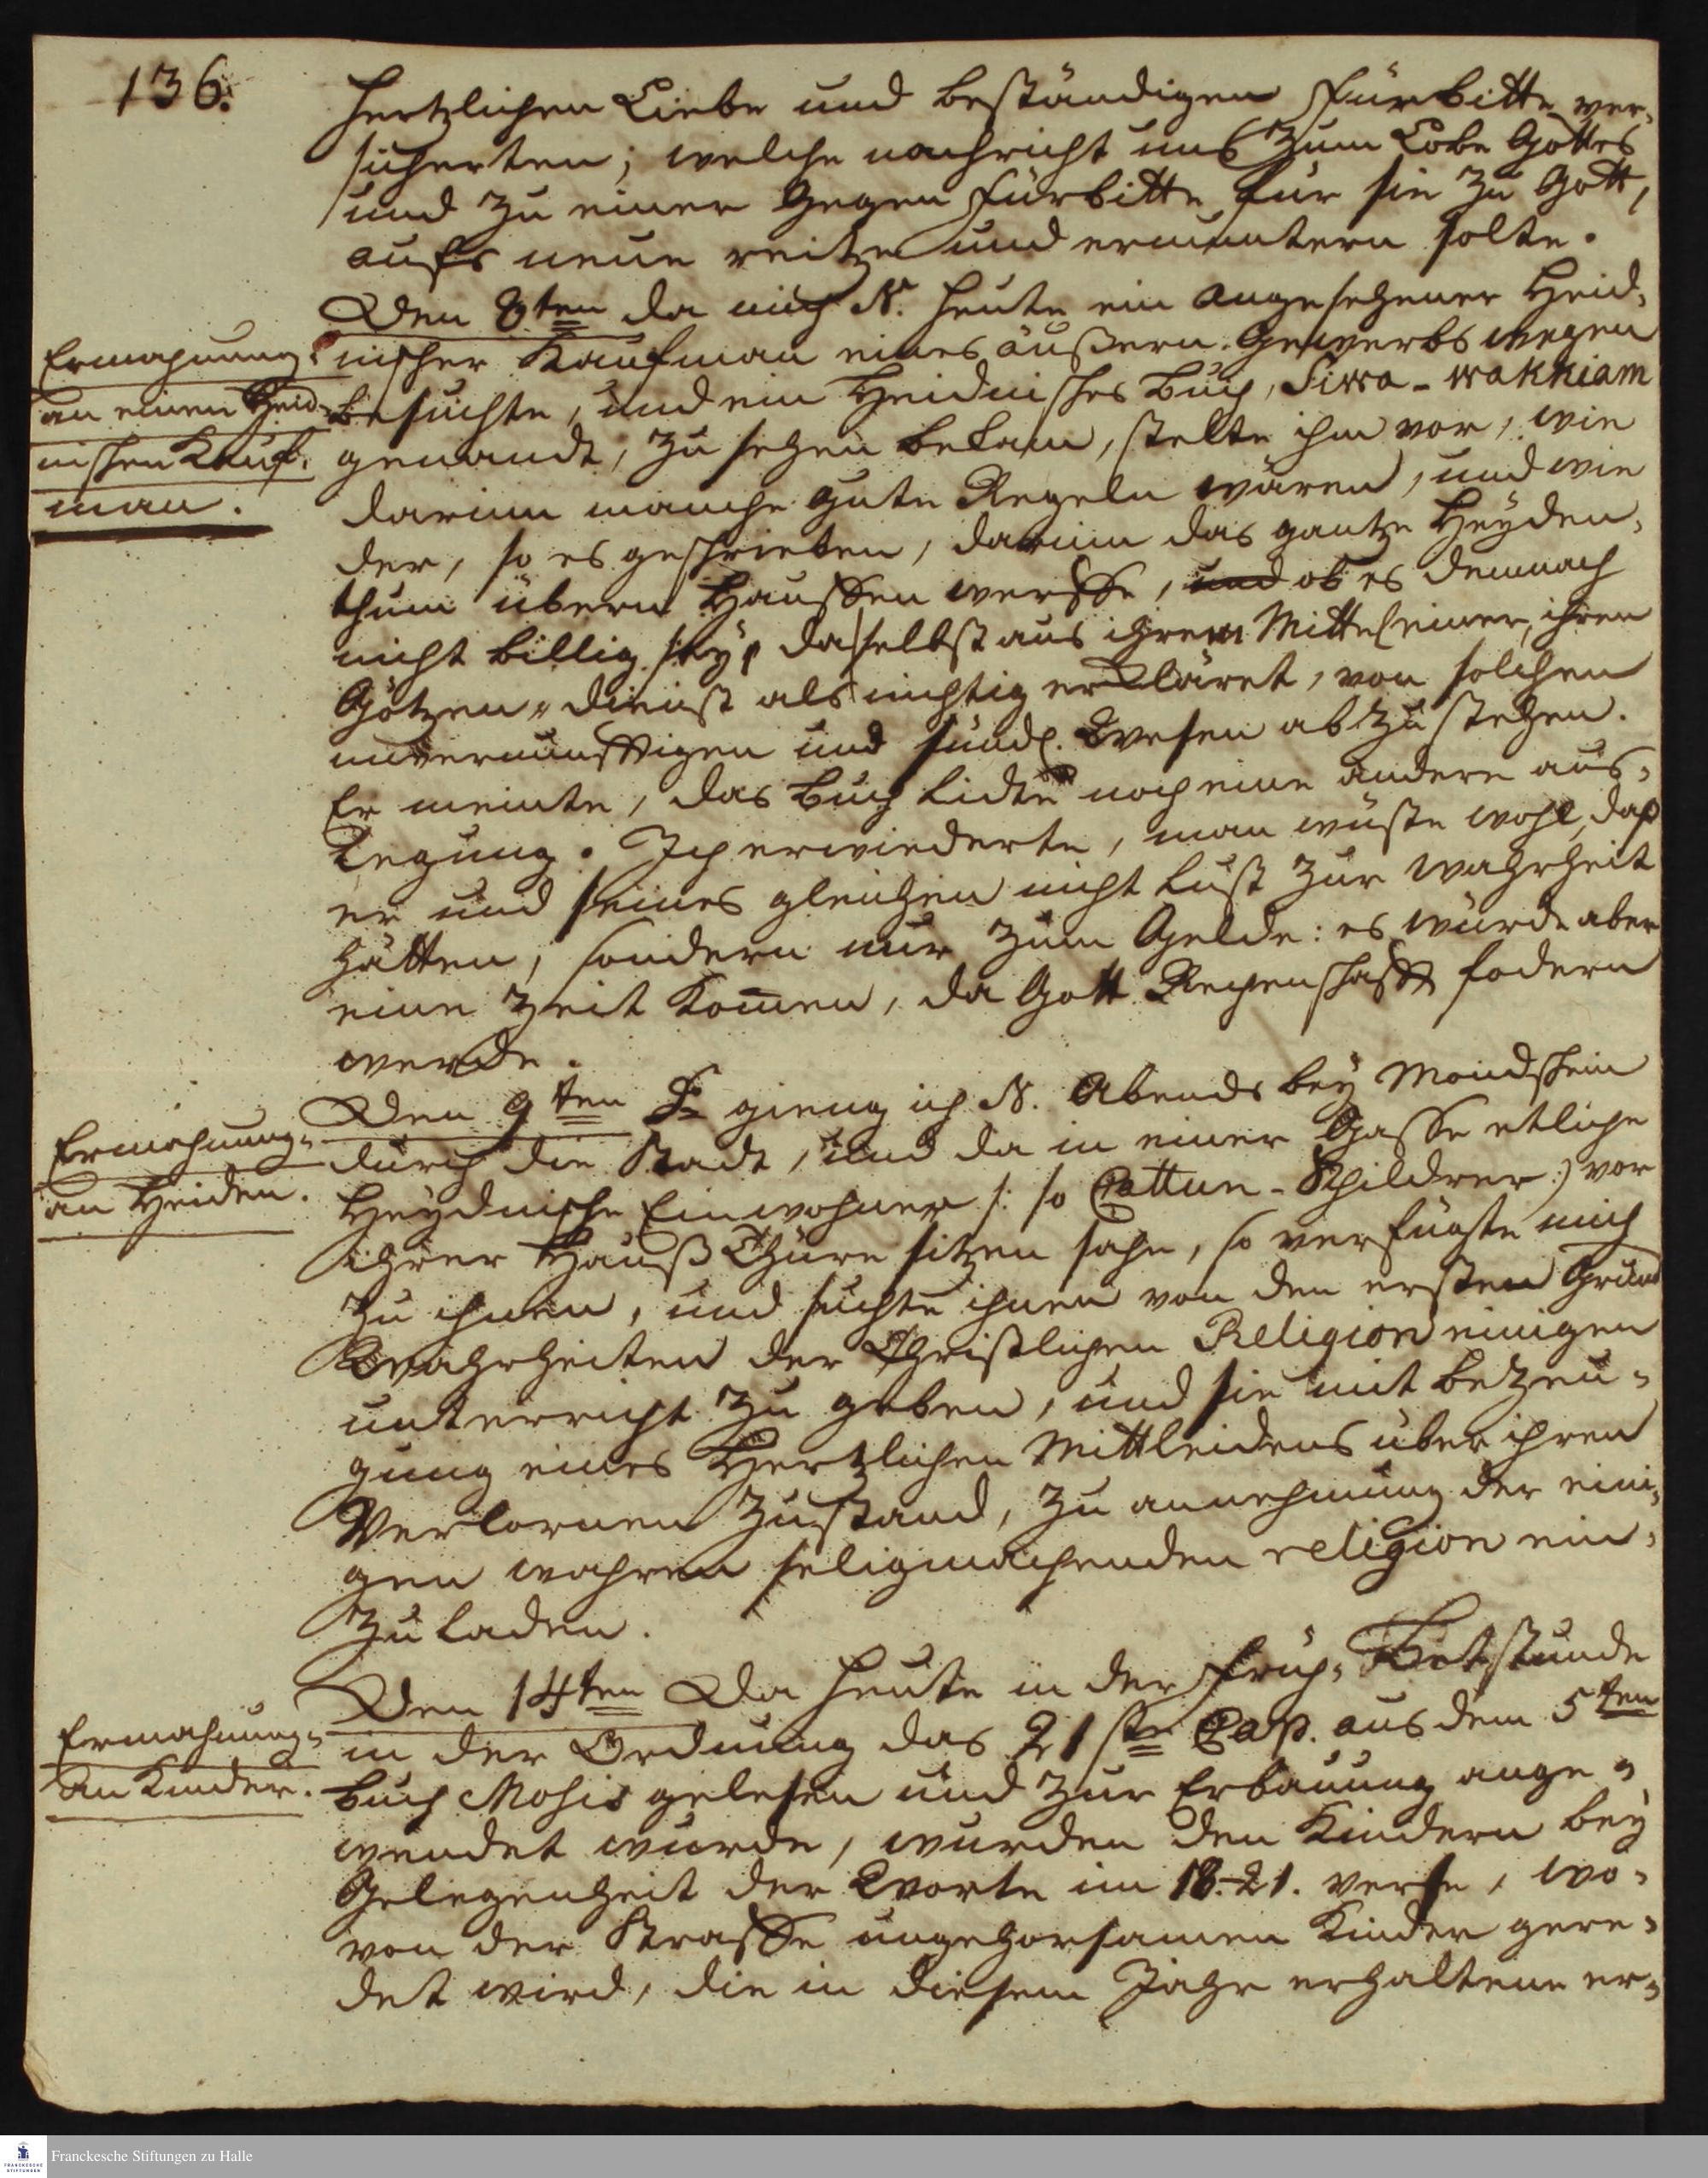 136.
hertzlichen Liebe und beständigen Fürbitte ver-
sicherten; welche nachricht uns zum Lobe Gottes
und zu einer Gegen Fürbitte für sie zu Gott,
aufs neue reitze und ermuntern solte.
Den 8ten da mich N. heute ein Angesehener Heid-
nischer Kaufman eines äußern Gewerbs wegen
besuchte, und ein Heidnisches Buch, Siwa-wakkiam
genandt, zu sehen bekam, stelte ihm vor, wie
darinn manche gute Regeln wären, und wie
der, so es geschrieben, darinn das gantze Heyden-
thum übern Hauffen werffe, und ob es demnach
nicht billig sey, da selbst aus ihrem Mittel einer, ihren
Götzen-dienst als nichtig erkläret, von solchen
unvernünfftigen und sündl. Wesen abzustehen.
Er meinte, das Buch lidte noch eine andere aus-
legung. Ich erwiederte, man wüste wohl, daß
er und seines gleichen nicht Lust zur Wahrheit
hätten, sondern nur zum Gelde: es würde aber
eine Zeit kom̅en, da Gott Rechenschafft fodern
werde.
Ermahnung
an einen Heid-
nischen Kauf-
man.
Den 9ten gieng ich N. Abends bey Mondschein
durch die Stadt, und da in einer Gasse etliche
Heydnische Einwohner /: so Cattun-Schildrer :/ vor
ihrer Hauß Thüre sitzen sahe, so verfügte mich
zu ihnen, und suchte ihnen von den ersten Grund
Wahrheiten der Christlichen Religion einigen
unterricht zu geben, und sie mit bezeu-
gung eines Hertzlichen Mittleidens über ihren
Verlornen Zustand, zu annehmung der eini-
gen wahren seligmachenden religion ein-
zuladen.
Ermahnung-
an Heiden.
Den 14ten Da heute in der Früh-Betstunde
in der Ordnung das 21ste Cap. aus dem 5ten
Buch Mosis gelesen und zur Erbauung ange-
wendet wurde, wurden den Kindern bey
Gelegenheit der Worte im 18-21. verse, wo-
von der Straffe ungehorsamen Kinder gere-
det wird, die in diesem Jahr erhaltene er-
Ermahnung-
an Kinder.
Franckesche Stiftungen zu Halle
FRANCKESCHE
STIFTUNGEN